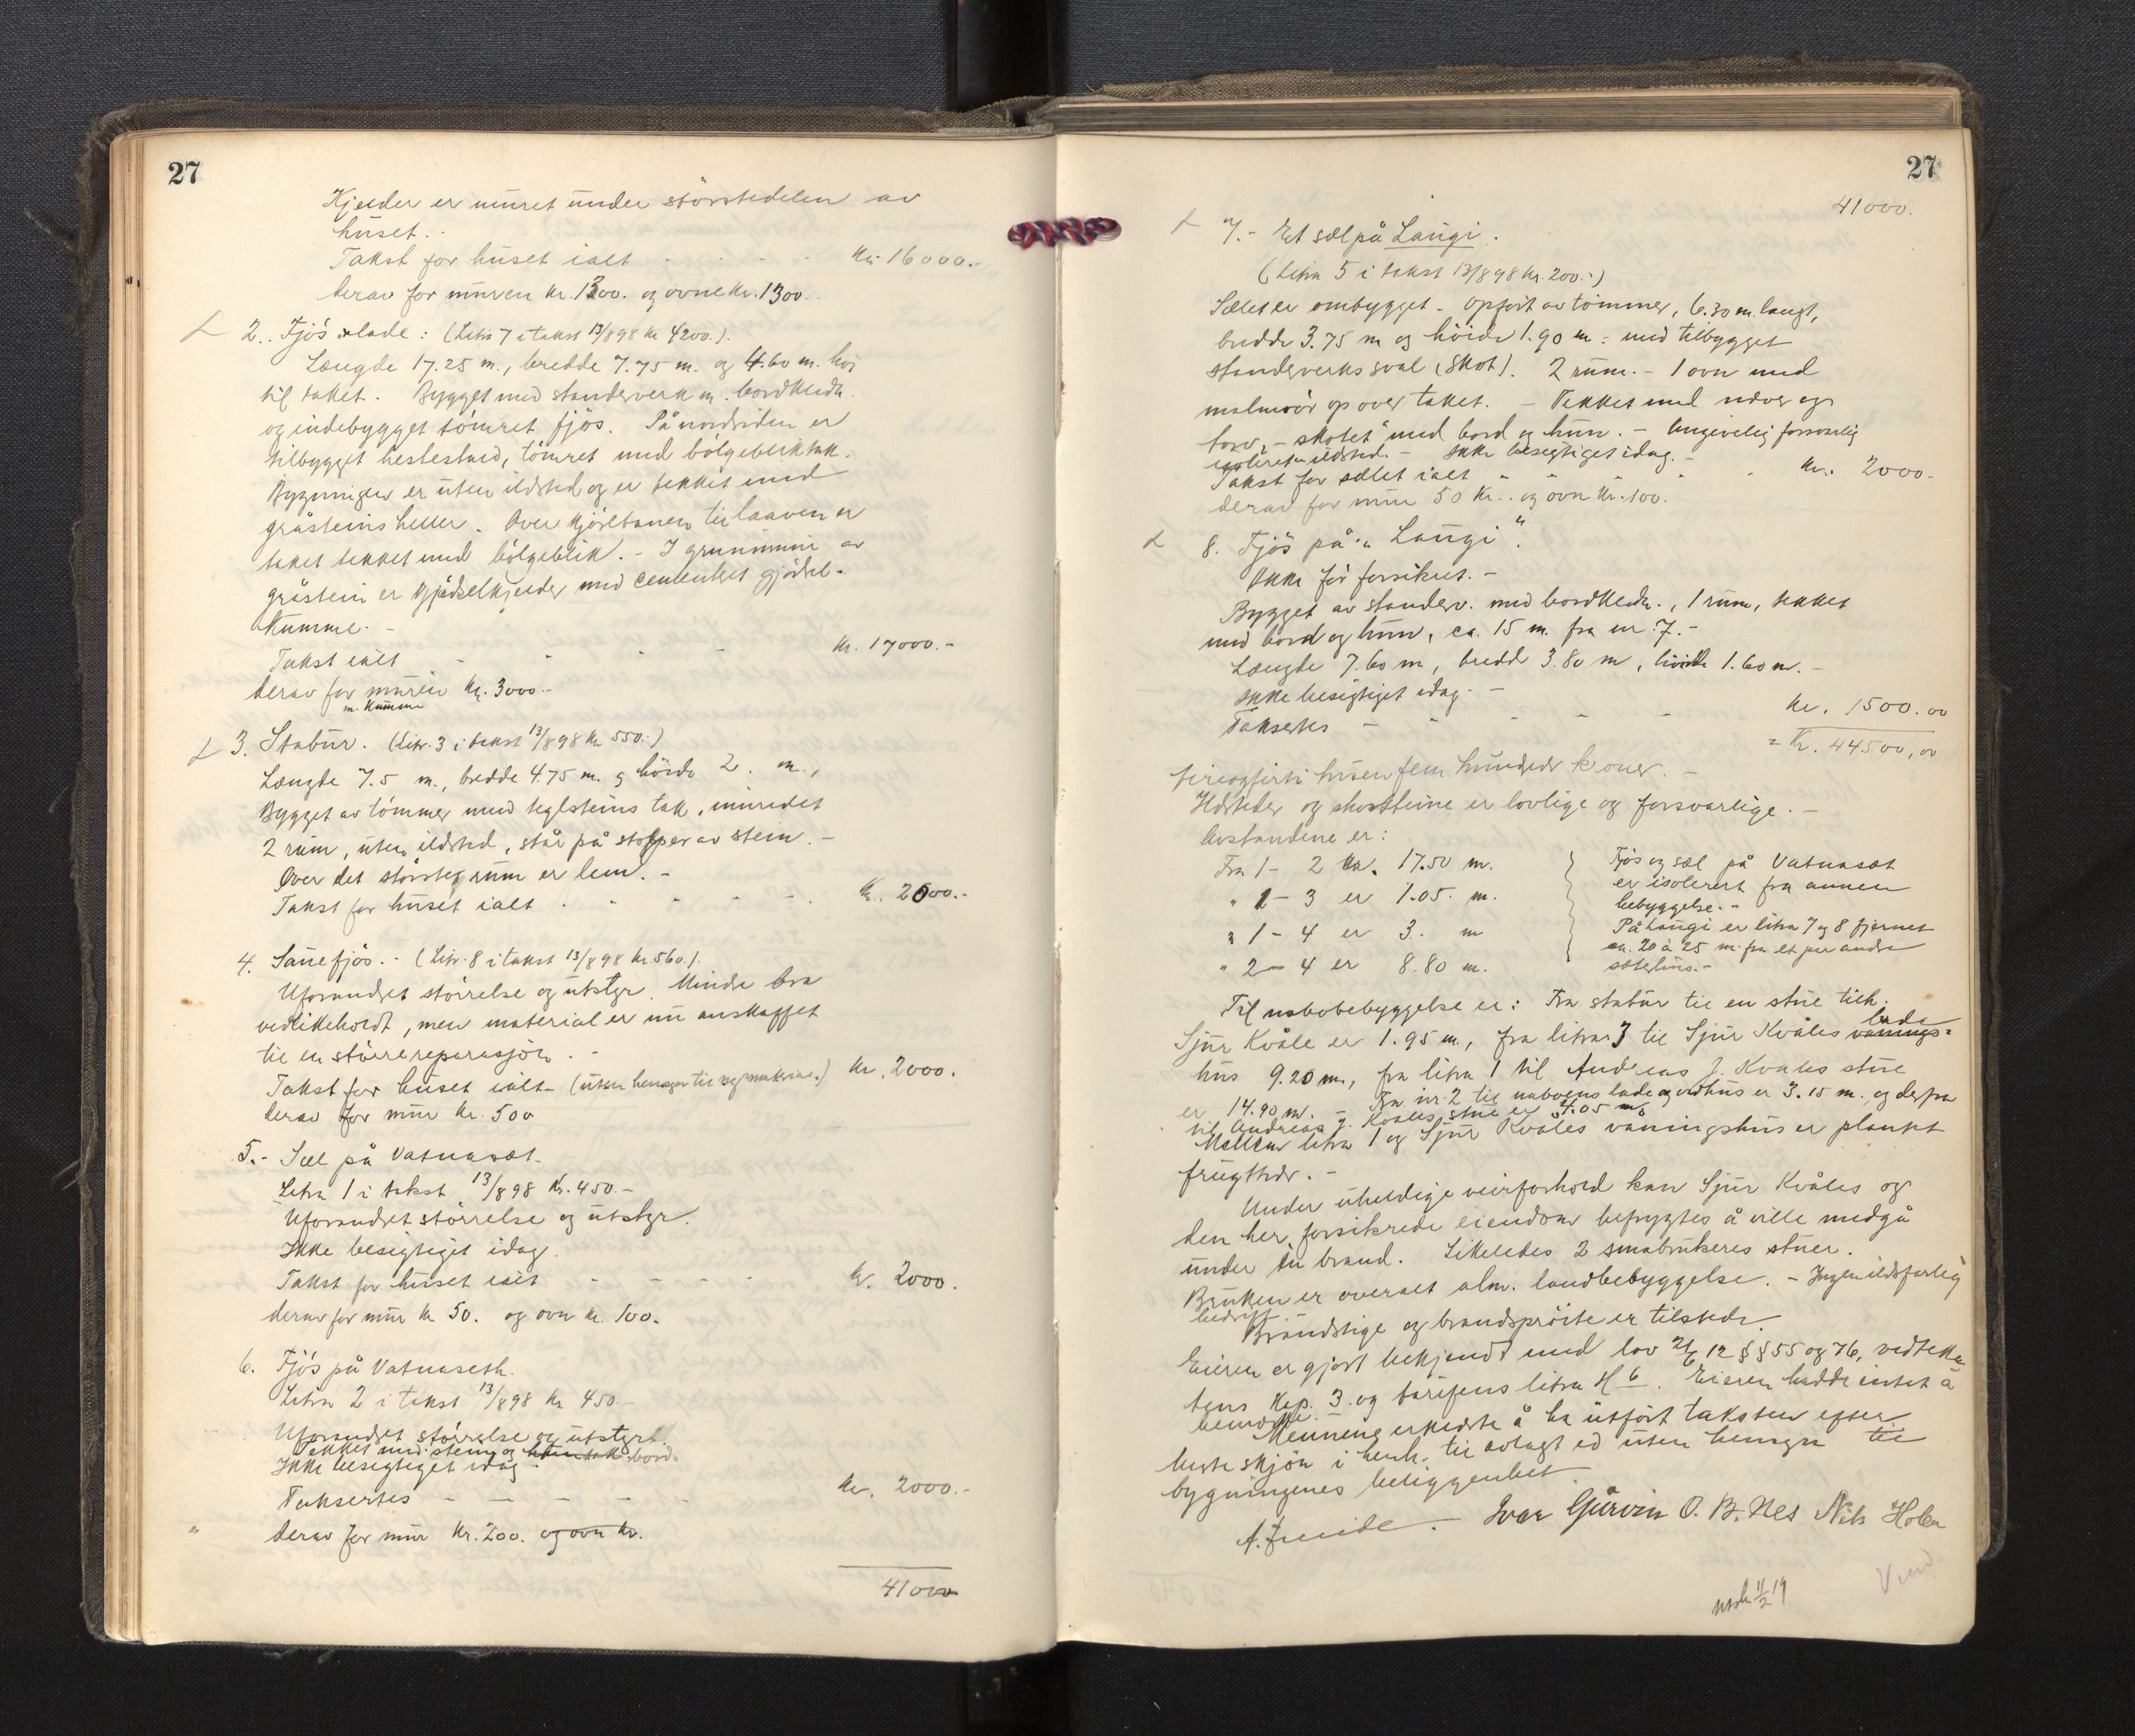 27
Kjelder er muret under störstedelen av
huset.
Takst for huset ialt - - - - kr. 16000.-
derav for muren kr. 1300. og ovne kr. 1300.
2. Fjös & lade: (Litr. 7 i takst 13/8 98 kr 4200.).
Længde 17.25 m., bredde 7.75 m. og 4.60 m. höi
til taket. Bygget med standverk m. bordklædn.
og indebygget tömret fjös. På nordsiden er
tilbygget hestestald, tömret med bölgebliktak.
Bygningen er uten ildsted og er tekket med
gråsteins heller. Over kjörebanen til laaven er
taket tekket med bölgeblik. - I grunnmur av
gråstein er gjödselkjelder med cementert gjödsel-
kumme. -
Takst ialt - - - - kr. 17000.-
derav for muren kr. 3000.-
m. kumme
3. Stabur. (Litr. 3 i takst 13/8 98 kr 550.-)
Længde 7.5 m., bredde 4.75 m. og höide 2. m.,
Bygget av tömmer med teglsteins tak, innredet
2 rum, uten ildsted, står på stolper av stein. -
Over det störste rum er lem. -
Takst for huset ialt - - - - Kr. 2000.-
4. Sauefjös. - (Litr. 8 i takst 13/8 98 kr. 560.).
Uforandret störrelse og utstyr. Mindre bra
vedlikeholdt, men material er nu anskaffet
til en större reparasjon. -
Takst for huset ialt - (uten hensyn til rep. materiale.) kr. 2000.
derav for mur kr. 500
5. - Sæl på Vatnasæt.
Litra 1 i takst 13/8 98 kr. 450.-
Uforandret störrelse og utstyr.
Ikke besigtiget idag.
Takst for huset ialt - - - - kr. 2000.
derav for mur kr 50. og ovn kr. 100.
6. Fjös på Vatnaseth.
Litra 2 i takst 13/8 98 kr 450.-
Uforandret störrelse og utstyr.
Tekket med stein og bord.
Ikke besigtiget idag.
Taksertes - - - - - kr. 2000.-
derav for mur kr. 200. og ovn kr.
41000
27
41000.
7. - Et sæl på Laugi.
(Litra 5 i takst 13/8 98 kr. 200.-)
Sælet er ombygget - opfört av tömmer, 6.30 m. langt,
bredde 3.75 m og höide 1.90 m. med tilbygget
standverks sval (skot). 2 rum. - 1 ovn med
malmrör op over taket. - Tekket med næver og
torv, - skotet med bord og hun. - Angivelig forsvarlig
isoleret ildsted. - Ikke besigtiget idag. -
Takst for sælet ialt - - - - kr. 2000.-
derav for mur 50 kr. og ovn kr. 100.
8. Fjös på "Laugi".
Ikke för forsikret. -
Bygget av standv. med bordklædn., 1 rum, tekket
med bord og hun, ca. 15 m. fra nr. 7. -
Længde 7.60 m, bredd 3.80 m, höide 1.60 m. -
Ikke besigtiget idag. -
Taksertes - - - - - kr. 1500.00
= Kr. 44500,00
fireogfirti tusen fem hundrede kroner. -
Ildsteder og skorsteine er lovlige og forsvarlige. -
Avstandene er:
Fra 1 - 2 ca. 17.50 m.
" 1 - 3 er 1.05. m.
" 1 - 4 er 3. m
" 2 - 4 er 8.80 m.
Fjös og sæl på Vatnasæt
er isolerert fra annen
bebyggelse. -
På Laugi er litra 7 og 8 fjernet
ca. 20 à 25 m. fra et par andre
sæterhus. -
Til nabobebyggelse er: Fra stabur til en stue tilh.
Sjur Kvåle er 1.95 m., fra litra 3 til Sjur Kvåles vånings-
lade
hus 9.20 m, fra litra 1 til Andreas J. Kvåles stue
er 14.90 m. - Fra nr. 2 til naboens lade og vedhus er 3.15 m. og derfra
til Andreas J. Kvåles stue er 4.05 m.
Mellem litra 1 og Sjur Kvåles våningshus er plantet
frugttrær. -
Under uheldige veirforhold kan Sjur Kvåles og
den her forsikrede eiendom befrygtes å ville medgå
under en brand. Likeledes 2 småbrukeres stuer.
Bruken er overalt alm. landbebyggelse. - Ingen ildsfarlig
bedrift.
Brandstige og brandspröite er tilstede.
Eieren er gjort bekjendt med lov 21/6 12 §§ 55 og 76, vedtek-
tens kap. 3. og tarifens litra H 6. Eieren hadde intet å
bemerke.
Mennene erklærte å ha utfört taksten efter
beste skjön i henh. til avlagt ed uten hensyn til
bygningenes beliggenhet.
Ivar Gjerven O. B. Nes Nils Holen
11/2 19